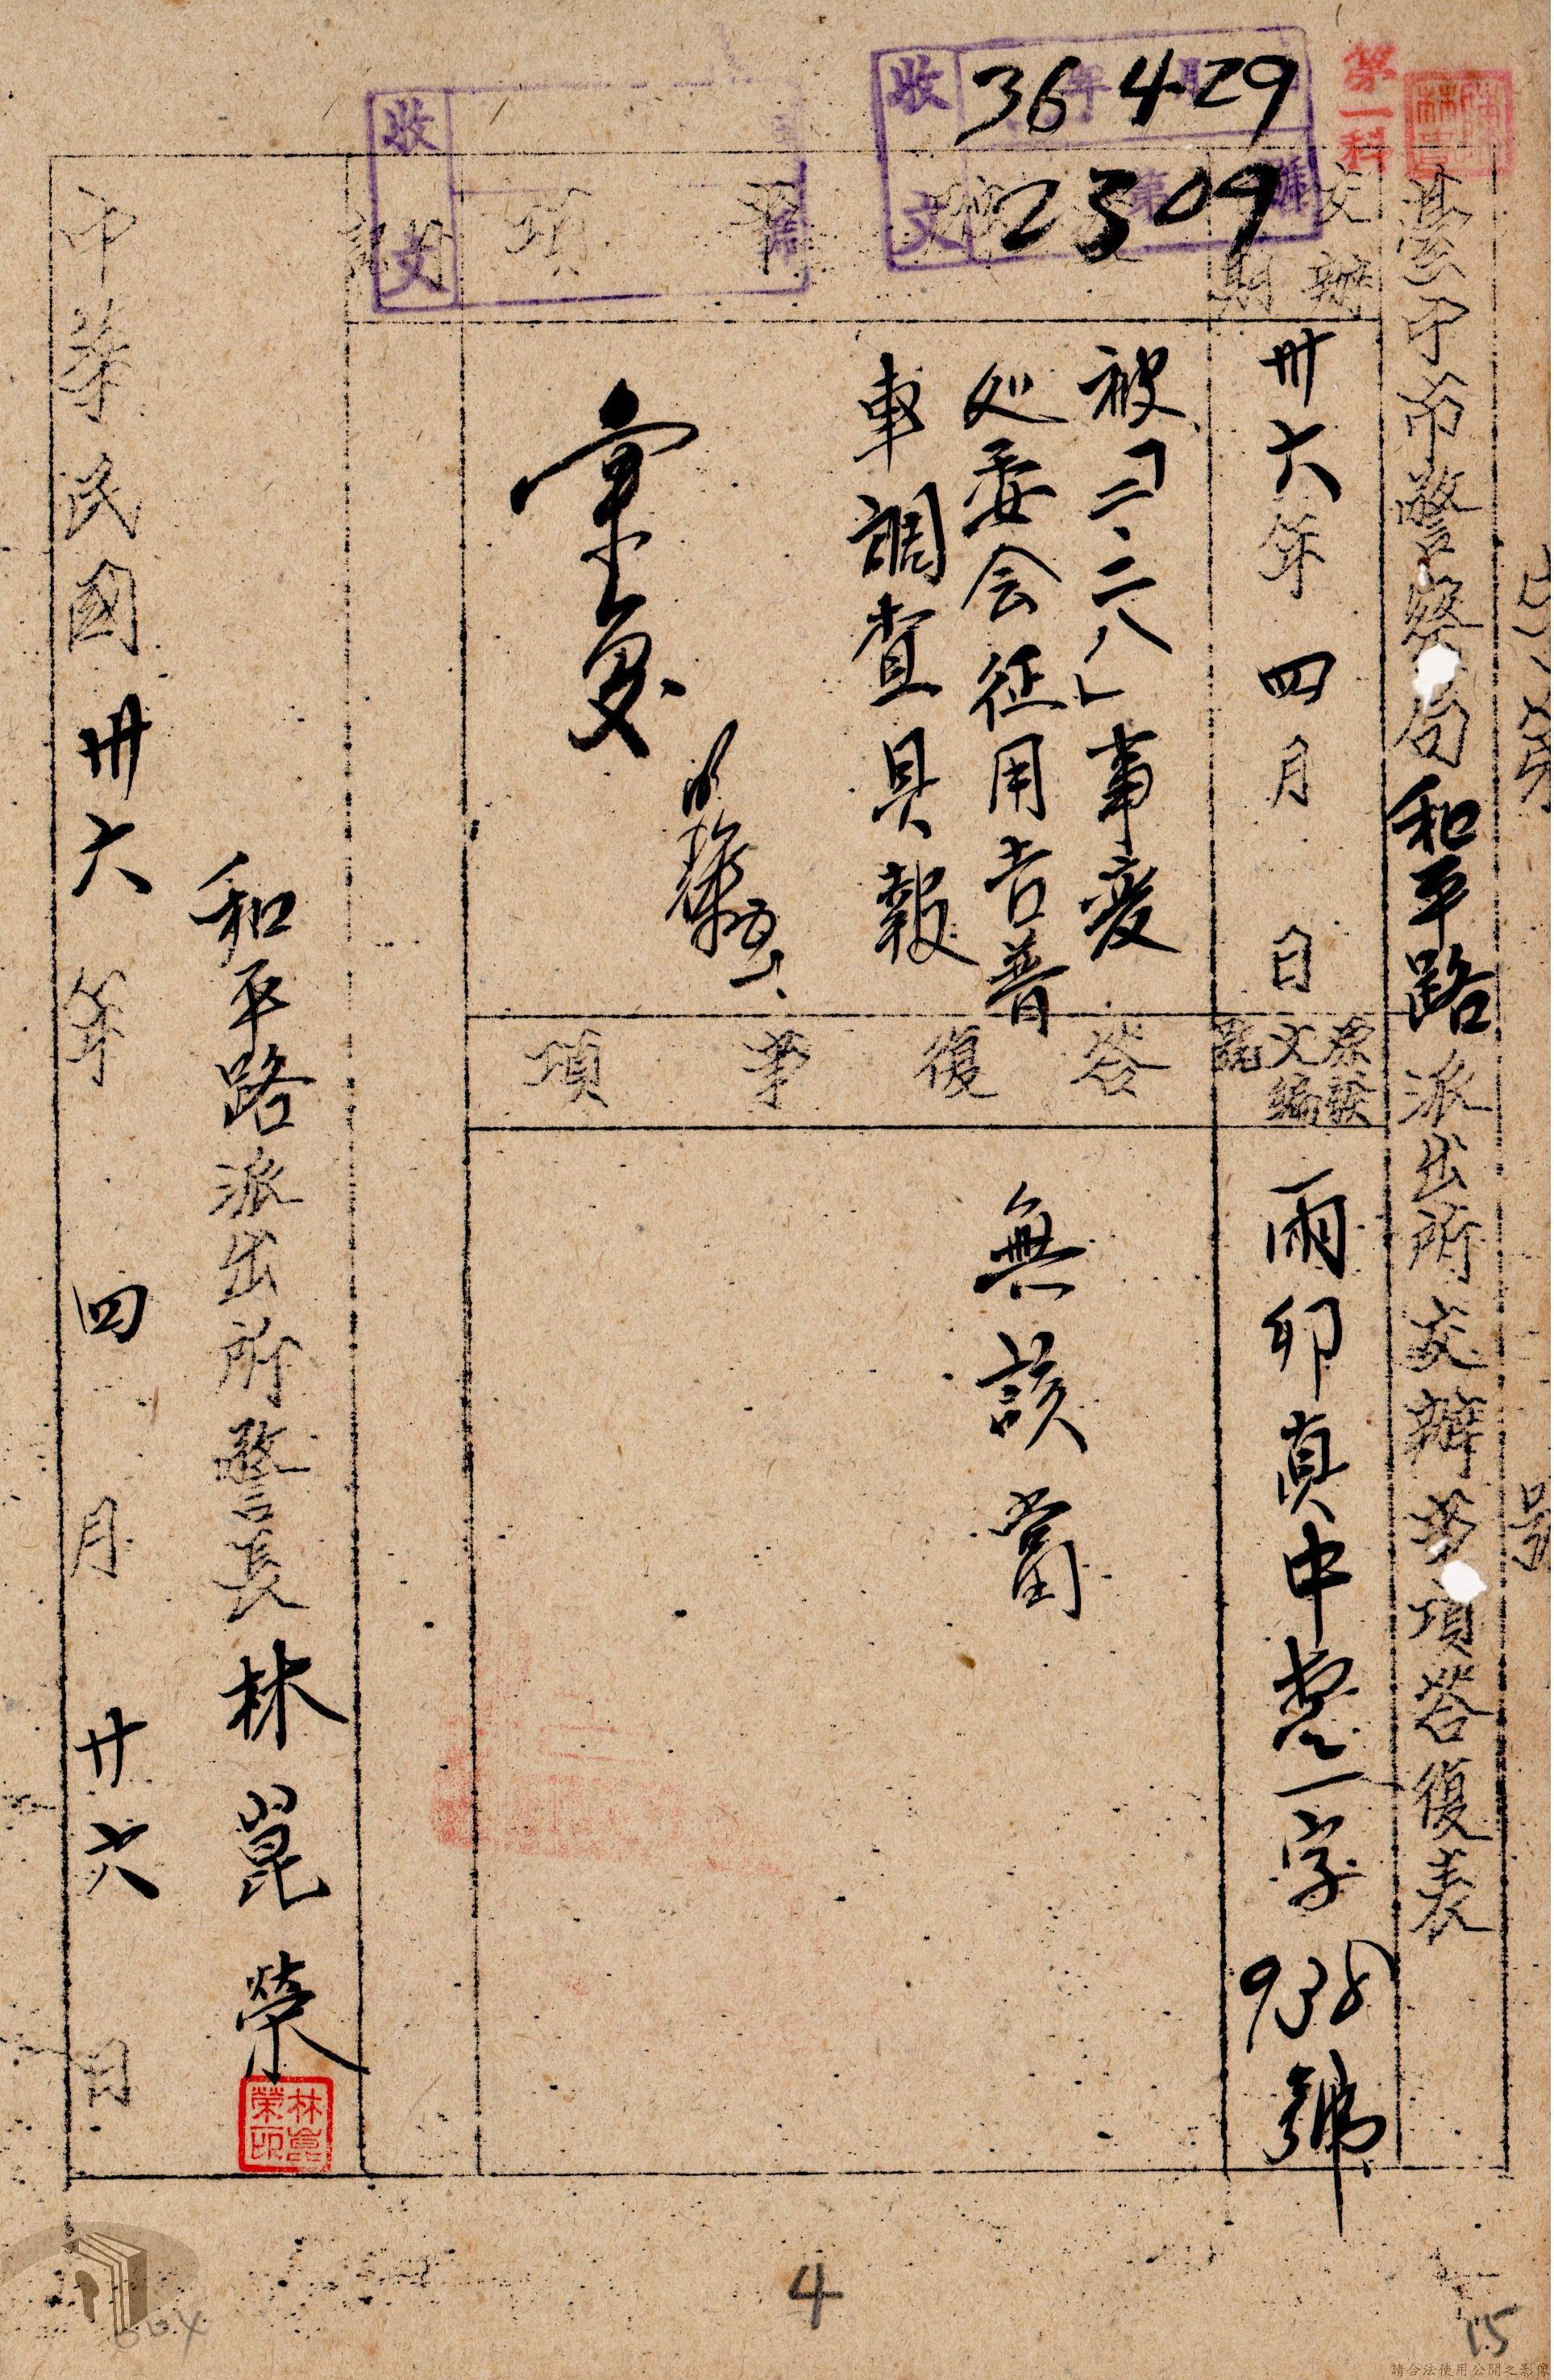 第一科
收文 36年4月29
第2309號
收文
臺中市警察局和平路派出所交辦事項答復表
交辦
期
卅六年四月 日
原發文編號
雨卯真中警一字938號
項
被「二、二八」事変
処委会征用吉普
車調查具報
彙复
答復事項
無該當
和平路派出所警長林崑榮
林崑榮印
中華民國卅六年四月廿六日
4
15
請合法使用公開之影像